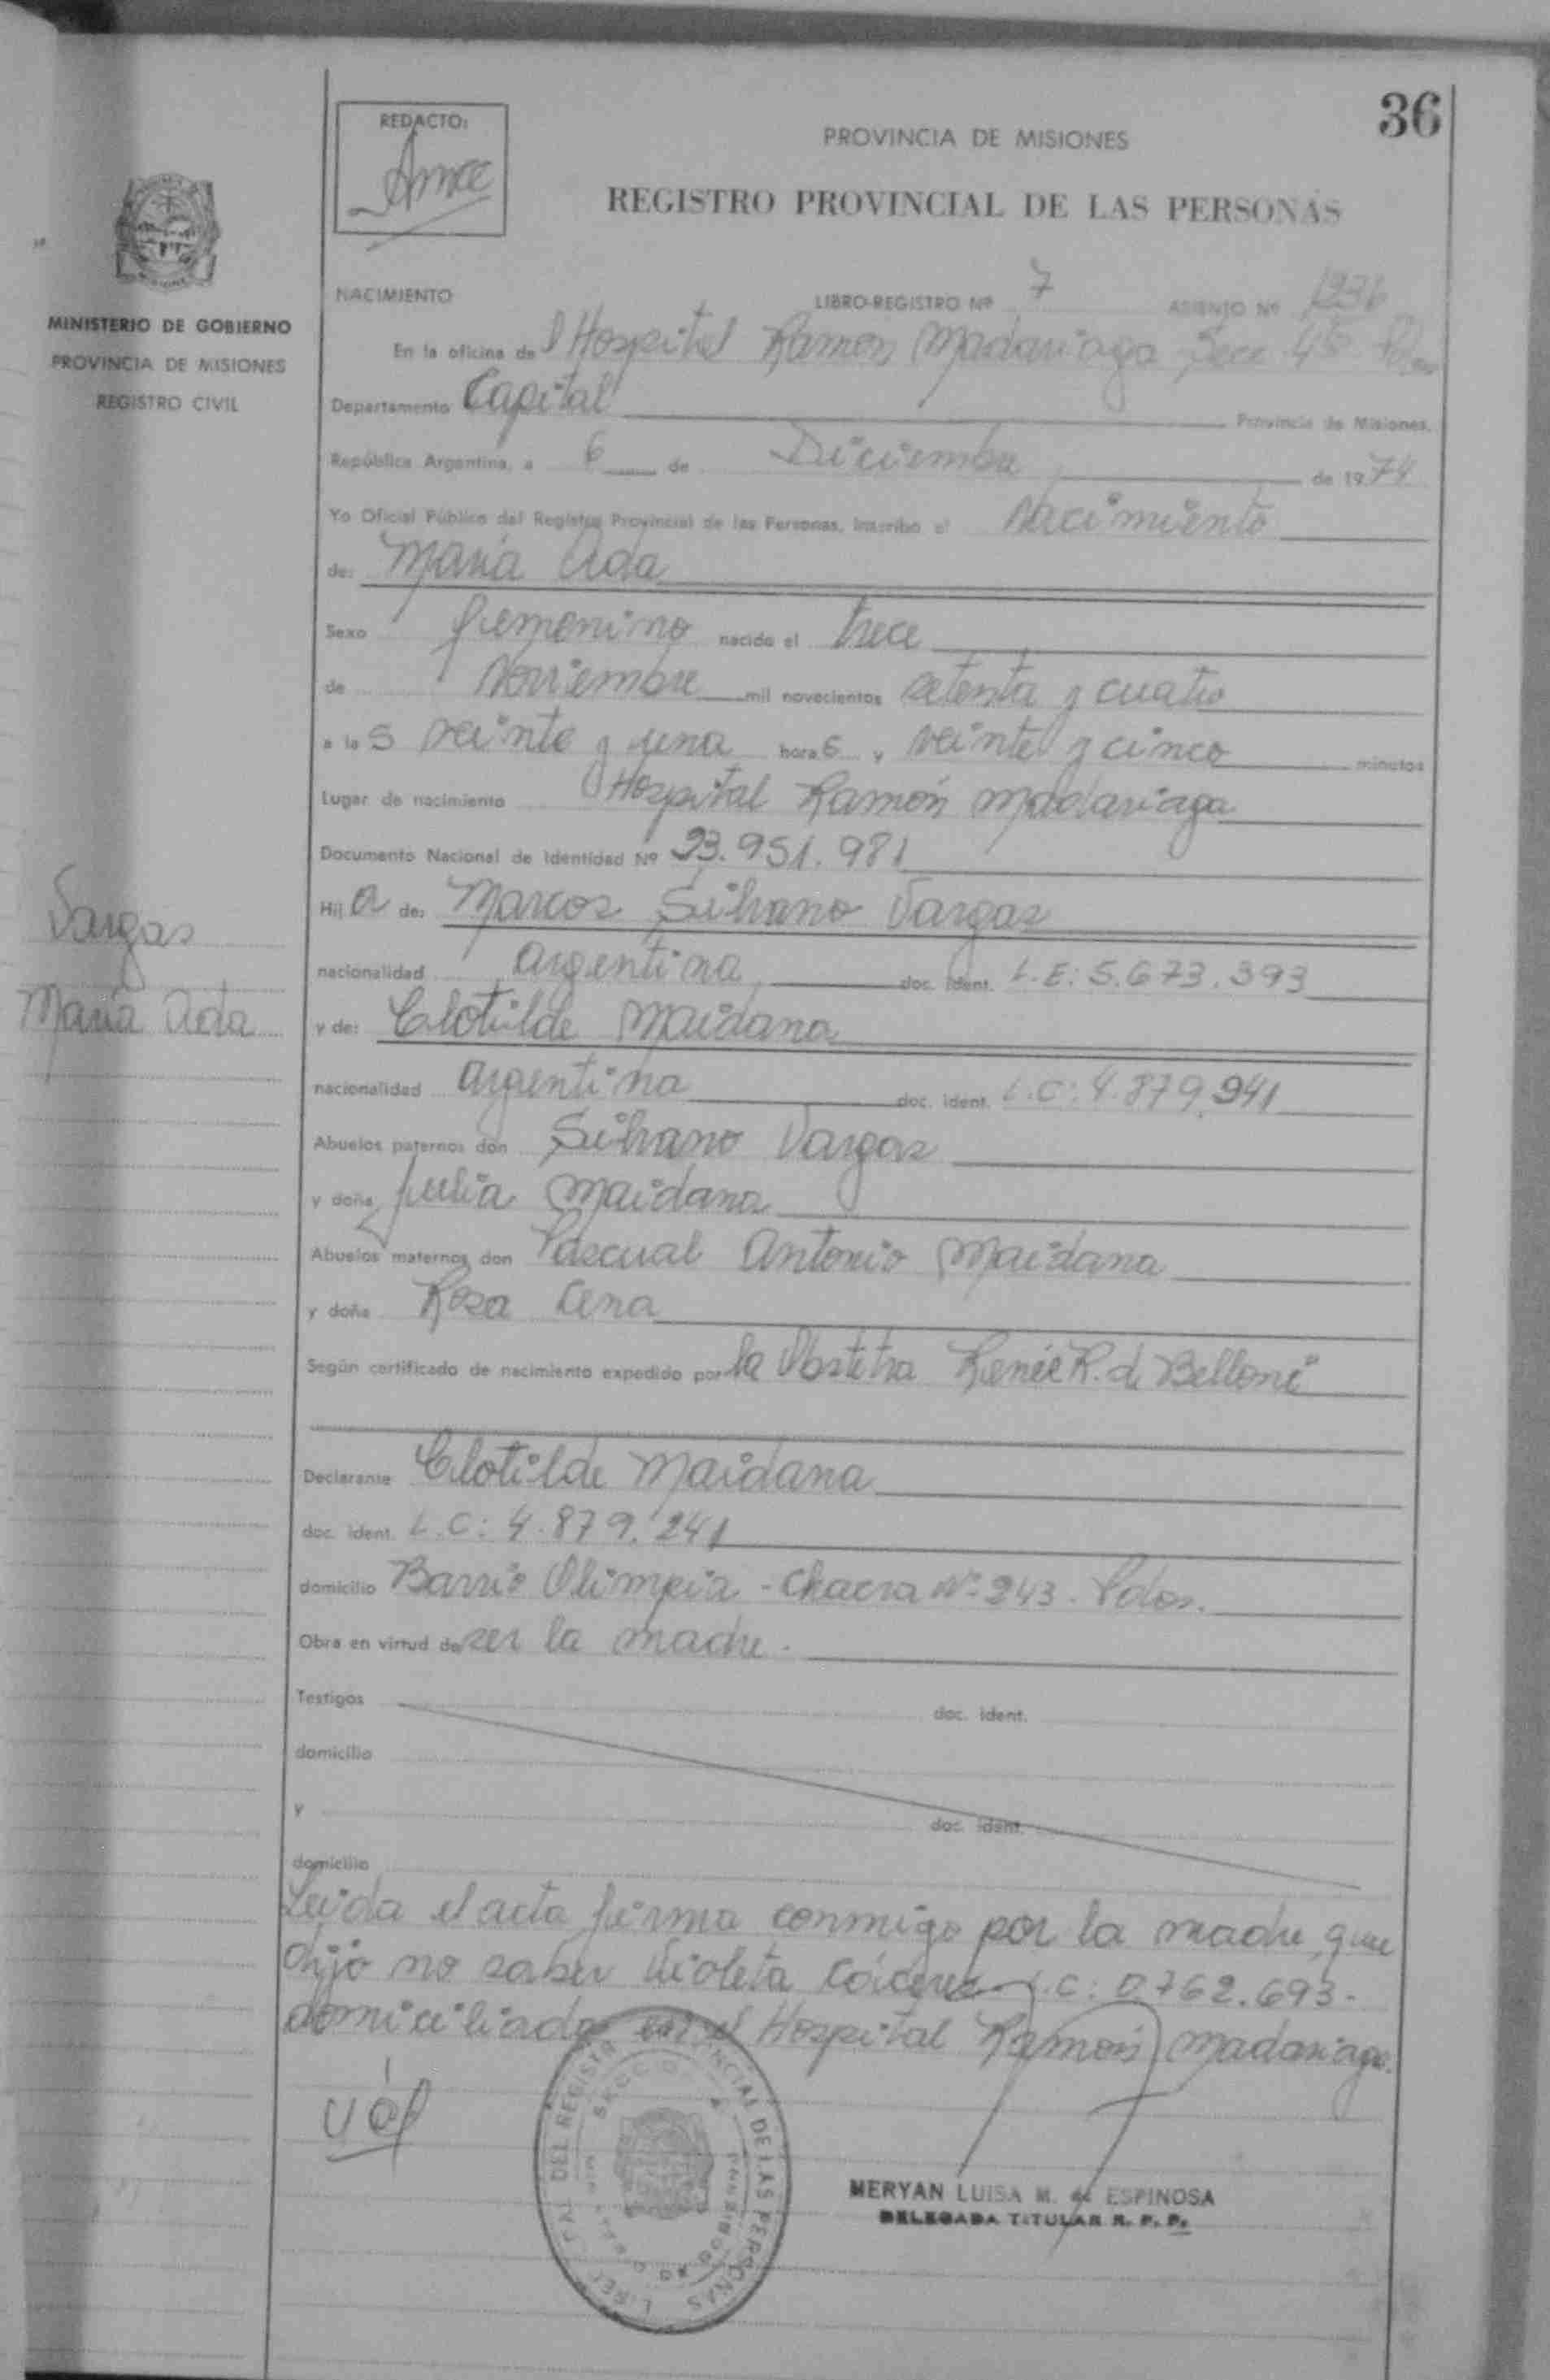 36
REDACTO:
PROVINCIA DE MISIONES
REGISTRO PROVINCIAL DE LAS PERSONAS
MINISTERIO DE GOBIERNO
PROVINCIA DE MISIONES
REGISTRO CIVIL
NACIMIENTO LIBRO-REGISTRO Nº 7 ASIENTO Nº 1236
En la oficina del Hospital Ramón Madariaga Secc 4ta Pdas
Departamento Capital Provincia de Misiones,
República Argentina, a 6 de Diciembre de 1974
Yo Oficial Público del Registro Provincial de las Personas, inscribo el Nacimiento
de: María Aida
Sexo femenino nacido el trece
de Noviembre mil novecientos setenta y cuatro
a las veinte y una horas y veinte y cinco minutos
Lugar de nacimiento Hospital Ramón Madariaga
Documento Nacional de Identidad Nº 23.951.981
Hija de: Marcos Silvano Vargas
nacionalidad argentina doc. ident. L.E: 5.673.393
Vargas
María Aida
y de: Clotilde Maidana
nacionalidad argentina doc. ident. L.C: 4.879.241
Abuelos paternos don Silvano Vargas
y doña Julia Maidana
Abuelos maternos don Pascual Antonio Maidana
y doña Rosa Cena
Según certificado de nacimiento expedido por la Obstetra Renée R. de Belloni
Declarante Clotilde Maidana
doc. ident. L.C: 4.879.241
domicilio Barrio Olimpia - Chacra Nº 243. Pdas.
Obra en virtud de ser la madre.
Testigos doc. ident.
domicilio
y doc. ident.
domicilio
Leida el acta firma conmigo por la madre que
dijo no saber Violeta Cáceres L.C: 0.762.693.
domiciliada en el Hospital Ramón Madariaga.
MERYAN LUISA M. de ESPINOSA
DELEGADA TITULAR R. P. P.